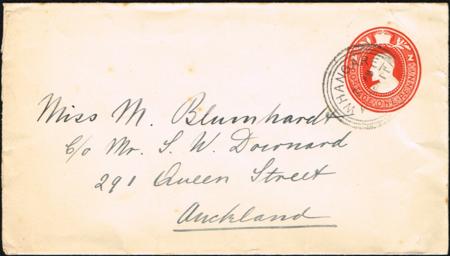 Miss M. Blumhardt
C/o Mr. S. W. Downard
291 Queen Street
Auckland